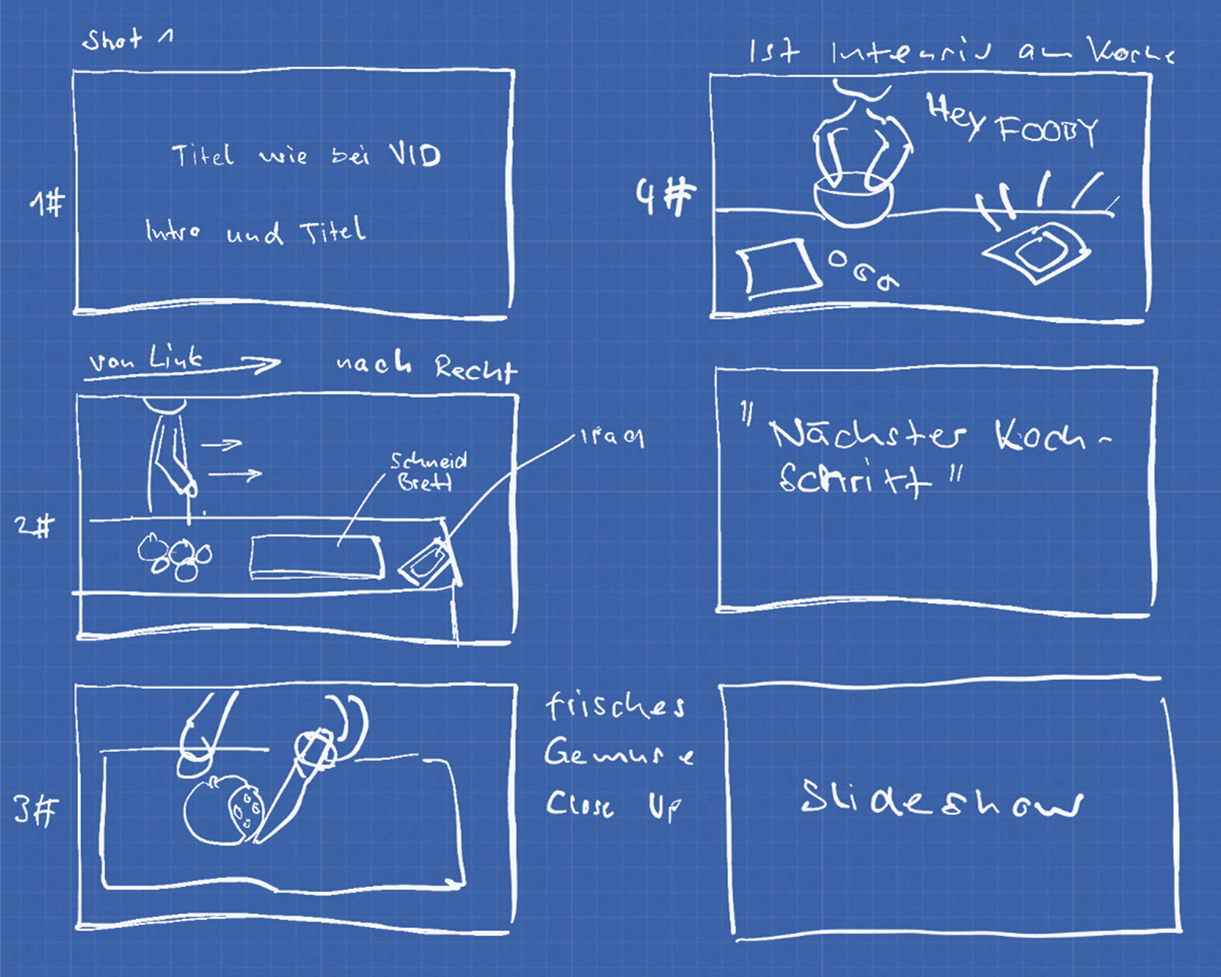 Shot 1
1#
Titel wie bei VID
Intro und Titel
von Link nach Recht
2#
Schneid
Brett
IPad
3#
frisches
Gemüse
Close Up
Ist Intensiv am Koche
4#
Hey FOOBY
"Nächster Koch-
Schritt"
Slideshow